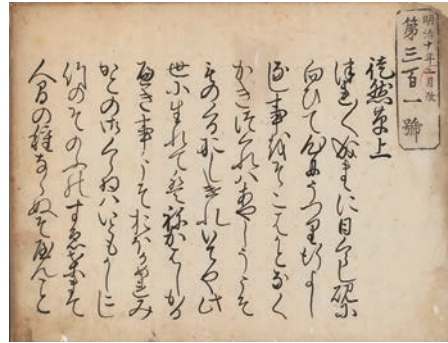 明治十年
第三百一號
徒然草上
つれ〳〵なるまゝに日くらし硯に
向ひて心にうつり行よし
なし事をそこはかとなく
かきつくれはあやしうこそ
ものくるおしけれいてや此
世に生れてはねかはしかる
へき事こそおほかめれみ
かとの御くらゐはいともかしこし
竹のそのふのすゑ葉まて
人間の種ならぬそやんこと